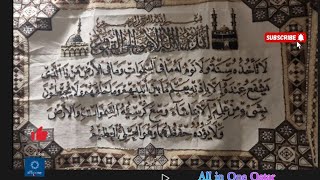 بسم الله الرحمن الرحيم
الله لا إله إلا هو الحي القيوم
لا تأخذه سنة ولا نوم له ما في السموات وما في الأرض من ذا الذي
يشفع عنده إلا بإذنه يعلم ما بين أيديهم وما خلفهم ولا يحيطون
بشيء من علمه إلا بما شاء وسع كرسيه السموات والأرض
ولا يؤده حفظهما وهو العلي العظيم
SUBSCRIBE
All in One Qatar